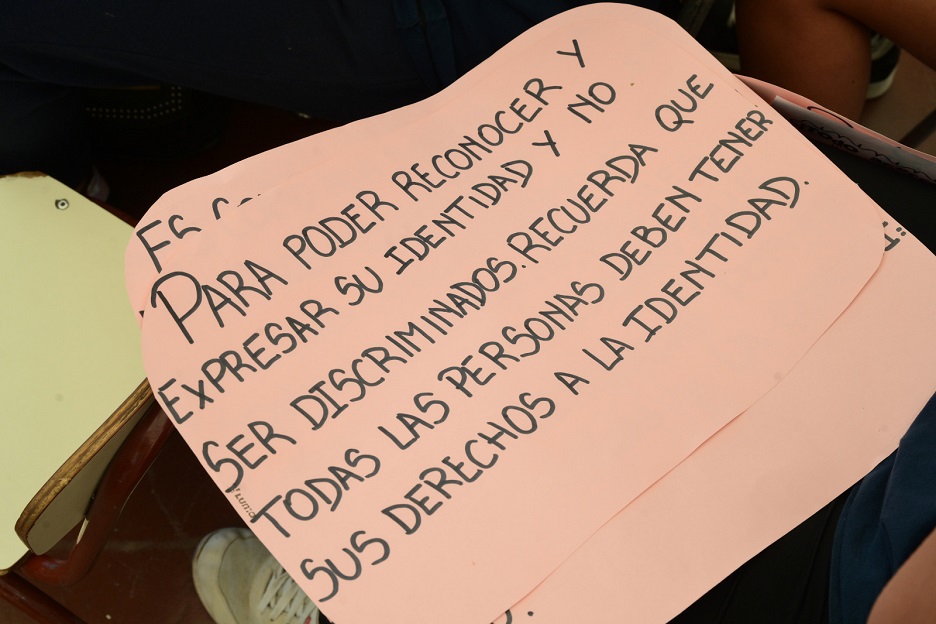 PARA PODER RECONOCER Y
EXPRESAR SU IDENTIDAD Y NO
SER DISCRIMINADOS. RECUERDA QUE
TODAS LAS PERSONAS DEBEN TENER
SUS DERECHOS A LA IDENTIDAD.